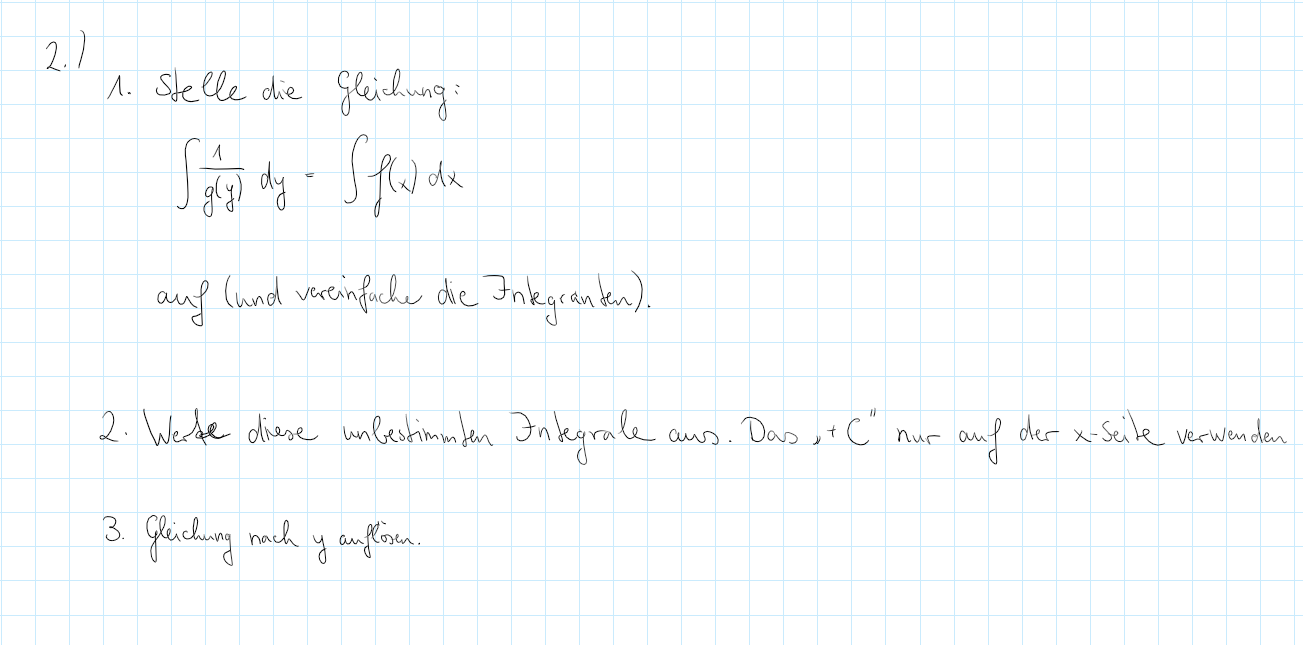 2.)
1. Stelle die Gleichung:
∫ 1/g(y) dy = ∫ f(x) dx
auf (und vereinfache die Integranten).
2. Werte diese unbestimmten Integrale aus. Das „+C" nur auf der x-Seite verwenden
3. Gleichung nach y auflösen.